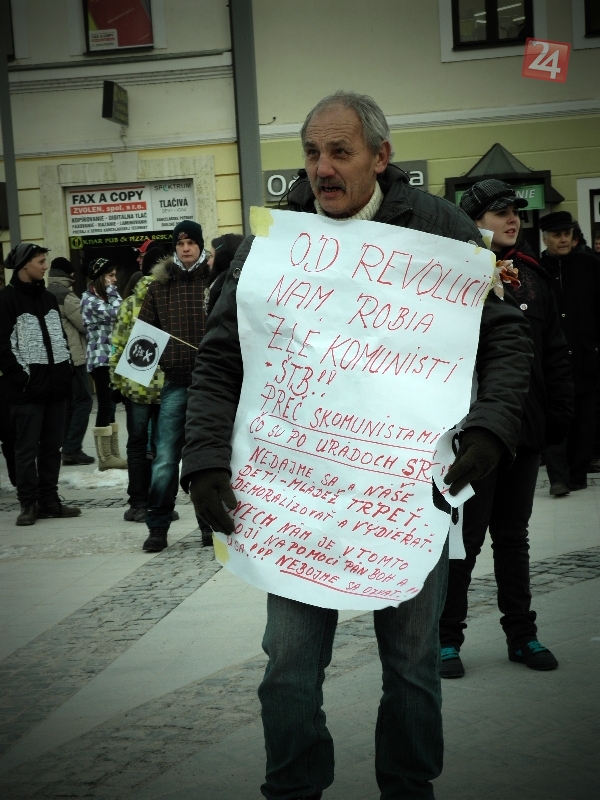 24
FAX A COPY
ZVOLEN, spol. s r.o.
KOPÍROVANIE - DIGITÁLNA TLAČ
SPEKTRUM
TLAČIVÁ
OD REVOLÚCII
NÁM ROBIA
ZLE KOMUNISTI
- ŠTB!!
PREČ SKOMUNISTAMI
ČO SU PO URADOCH SR
NEDAJME SA A NAŠE
DETI - MLÁDEŽ TRPEŤ
DEMORALIZOVAŤ A VYDIERAŤ.
NECH NÁM JE V TOMTO
BOJI NAPOMOCI PÁN BOH A
!!! NEBOJME SA OZVAŤ!!